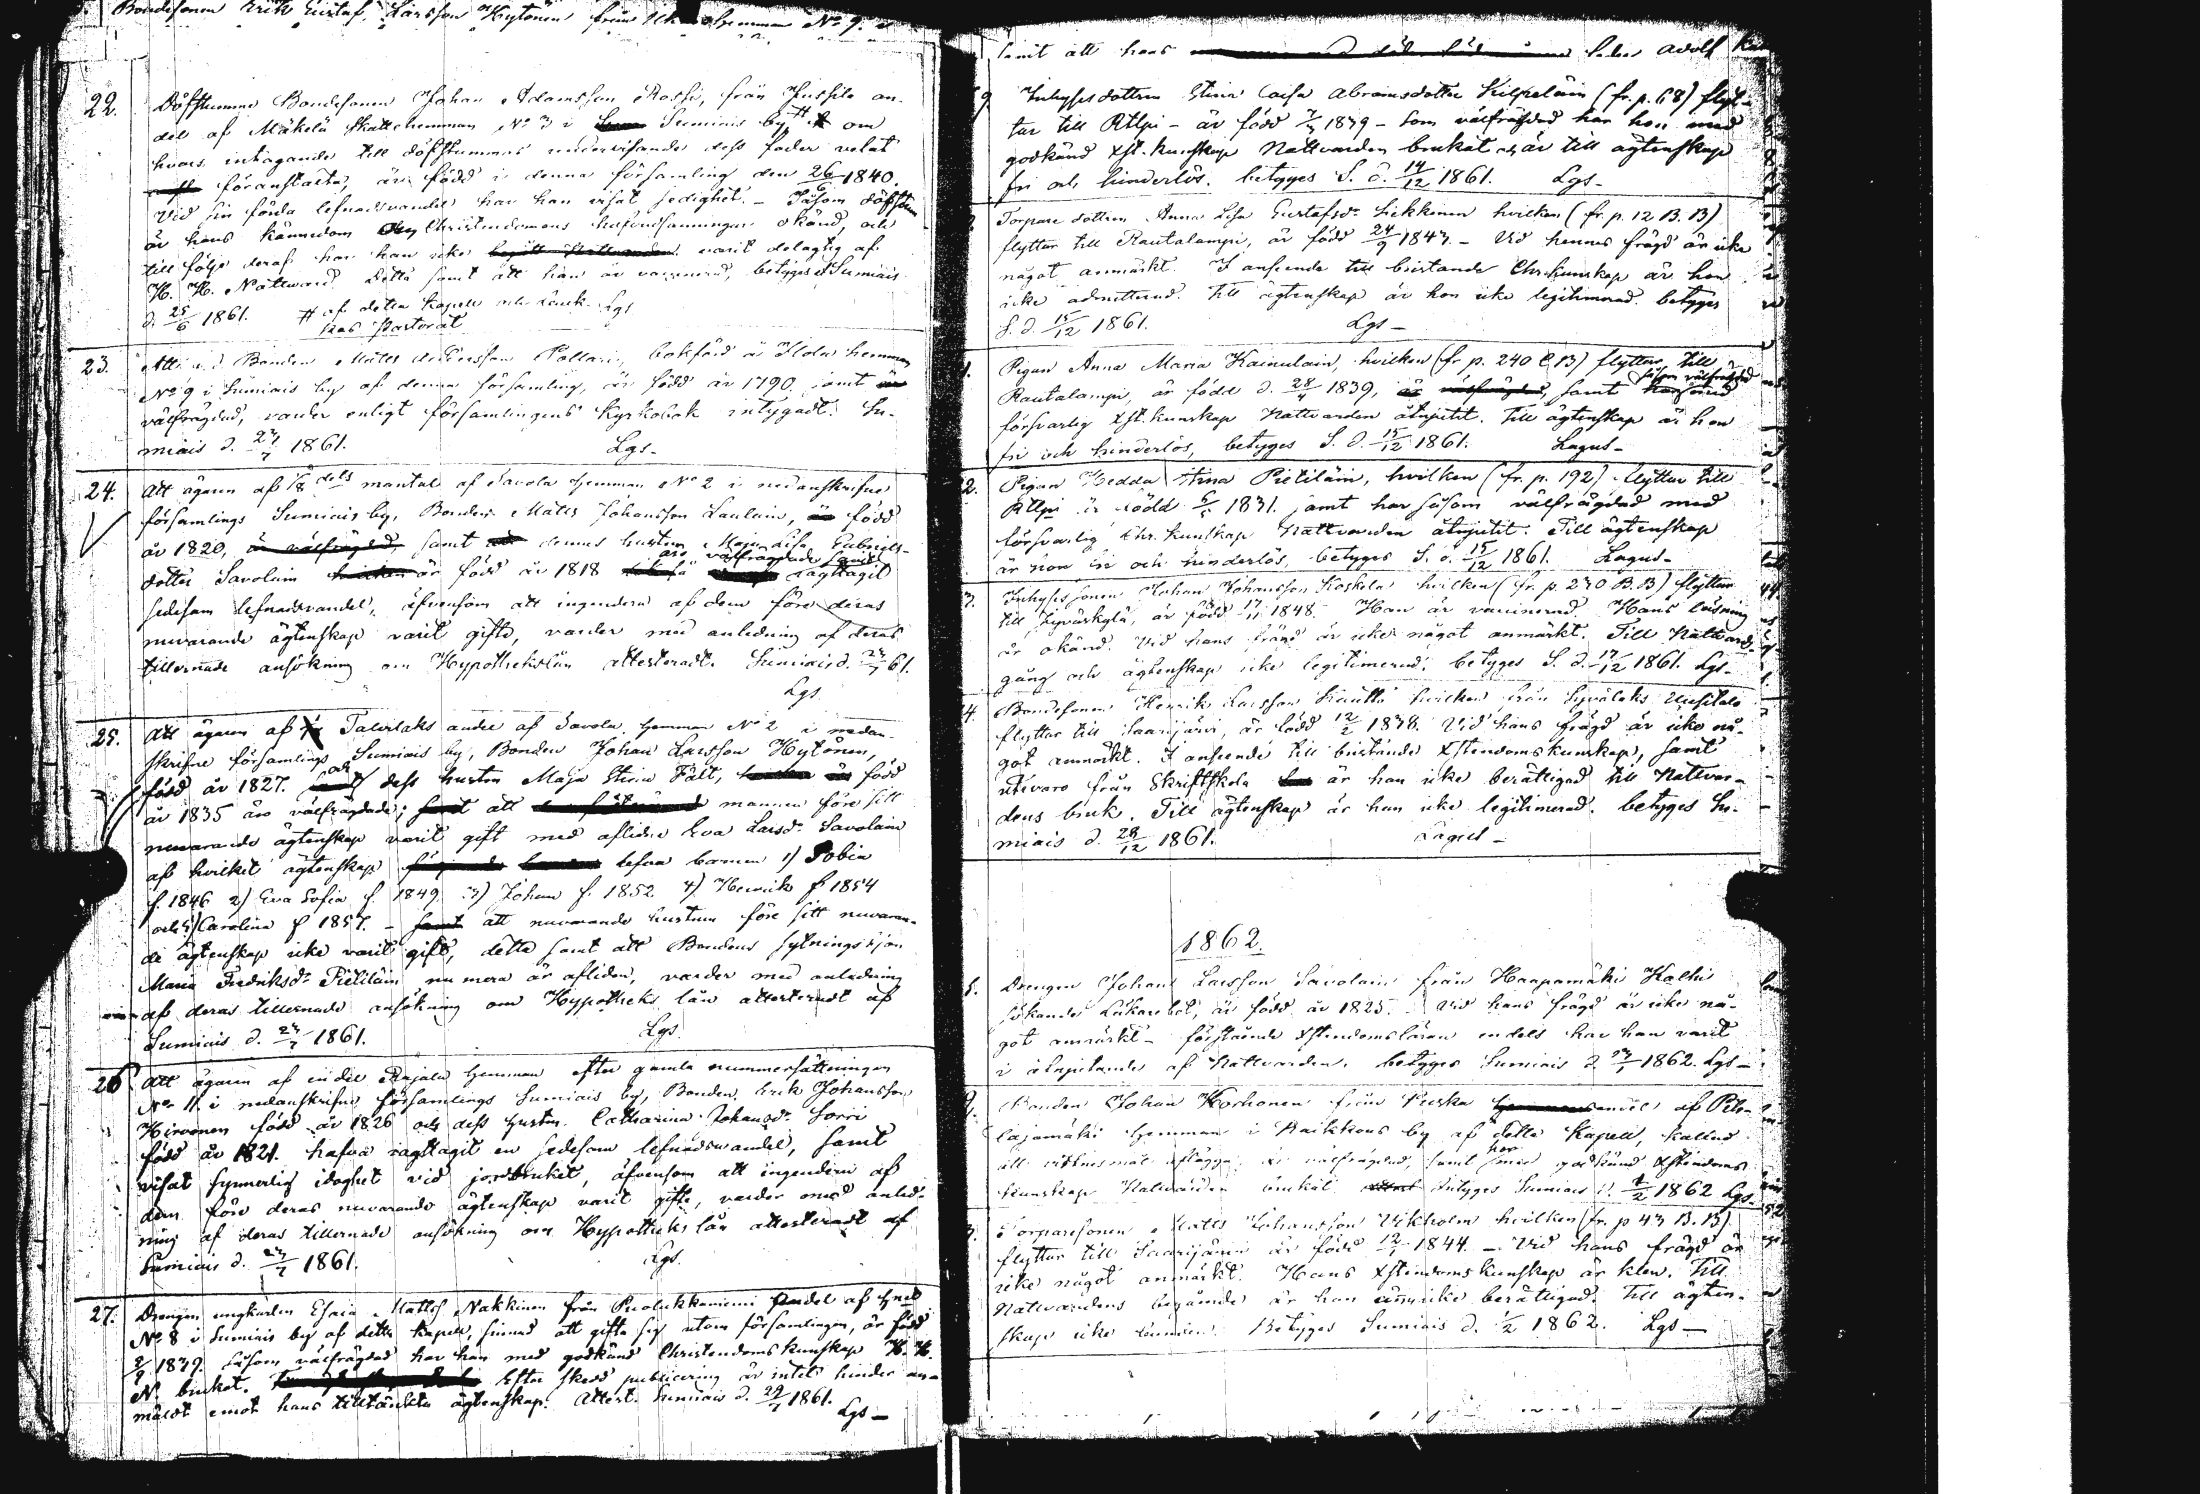 Bondesonen Erik Gustaf Larsson Hytönen från hemman No 9. i
22. Döfstumme Bondesonen Johan Adamsson Rossi, från Jussila an-
del af Mäkelä skattehemman No 3 i Sumiais by # om
hvars intagande till döfstummas undervisande dess fader velat
föranstalta, är född i denna församling den 26/6 1840.
Vid sin förda lefnadsvandel har han visat sedighet. - Såsom döfstum
är hans kännedom Christendomens hufvudsanningar okänd, och
till följe deraf har han icke varit delagtig af
H. H. Nattvard. Detta samt att han är vaccinerad, betyges Sumiais
d. 25/6 1861. # af detta Kapell och Lauk- Lgs
kas Pastorat
23. Att Bonden Matts Andersson Pollari, bokförd å Ilola hemman
No 9 i Sumiais by af denna församling, är född år 1790. samt
välfrägdad, varder enligt församlingens Kyrkobok intygadt. Su-
miais d. 27/7 1861. Lgs-
24. Att ägaren af 1/8 dels mantal af Savola hemman No 2 i nedanskrifne
församlings Sumiais by, Bonden Matts Johansson Laulain, född
år 1820, samt dennes hustru Maja Lisa Gabriels-
äro välfrägdade samt
dotter Savolain är född år 1818 iagttagit
sedesam lefnadsvandel, äfvensom att ingendera af dem före deras
nuvarande ägtenskap varit gifte, varder med anledning af deras
tillernade ansökning om Hypothekslån attesteradt. Sumiais d. 27/7 61.
Lgs
25. Att ägaren af andel af Savola hemman No 2 i nedan-
skrifne församlings Sumiais by, Bonden Johan Larsson Hytönen,
född år 1827. och dess hustru Maja Stina Fält, född
år 1835 äro välfrägdade; att mannen före sitt
nuvarande ägtenskap varit gift med aflidne Eva Larsdr Savolain
af hvilket ägtenskap lefva barnen 1) Tobias
f. 1846 2) Eva Sofia f. 1849. 3) Johan f. 1852 4) Henrik f 1854
och 5) Carolina f 1857. - att nuvarande hustrun före sitt nuvaran-
de ägtenskap icke varit gift, detta samt att Bondens sytningshjon
Maria Fredriksdr Pietiläin nu mera är afliden, varder med anledning
af deras tillernade ansökning om Hypotheks lån attesteradt af
Sumiais d. 27/7 1861. Lgs
26 Att ägaren af en del Rajala hemman efter gamla nummersättningen
No 11. i nedanskrifne församlings Sumiais by, Bonden Erik Johansson
Hirvonen född år 1826 och dess hustru Catharina Johansdr Sorri
född år 1821. hafva iagttagit en sedesam lefnadsvandel, samt
visat synnerlig idoghet vid jordbruket, äfvensom att ingendera af
dem före deras nuvarande ägtenskap varit gifte, varder med anled-
ning af deras tillernade ansökning om Hypotheks lån attesteradt af
Sumiais d. 27/7 1861. Lgs.
27. Drengen ungkarlen Esaia Mattss Nakkinen från Puolukkaniemi andel af hmn
No 8 i Sumiais by af detta Kapell, sinnad att gifta sig utom församlingen, är född
1839. Såsom välfrägdad har han med godkänd Christendoms kunskap H. H.
N. brukat. Efter skedd publicering är intet hinder an-
mäldt emot hans tilltänkta ägtenskap. Attest. Sumiais d. 29/7 1861.
Lgs-
samt att hans fader Adolf
Inhysesdottren Stina Caisa Abramsdotter Kilpeläin (fr. p. 68) flyt-
tar till Rtlpi - är född 1839 - Som välfrägdad har hon med
godkänd Xst. kunskap Nattvarden brukat och är till ägtenskap
fri och hinderlös. betyges S. d. 14/12 1861. Lgs-
Torpare dottren Anna Lisa Gustafsdr Liekkinen hvilken (fr. p. 12 B. B)
flyttar till Rautalampi, är född 24/9 1843. - Vid hennes frägd är icke
något anmärkt. I anseende till bristande Chr. kunskap är hon
icke admitterad. Till ägtenskap är hon icke legitimerad. betyges
S. d. 15/12 1861. Lgs-
Pigan Anna Maria Kainulain, hvilken (fr p. 240 C B) flyttar till
såsom välfrägdad
Rautalampi, är född d. 28/4 1839, samt
försvarlig Xst. kunskap Nattvarden åtnjutit. Till ägtenskap är hon
fri och hinderlös, betyges S. d. 15/12 1861. Lagus-
2. Pigan Hedda Stina Pietiläin, hvilken (fr. p. 192) flyttar till
Rtlpi är född 1831. samt har såsom välfrägdad med
försvarlig Chr. kunskap Nattvarden åtnjutit. Till ägtenskap
är hon fri och hinderlös, betyges S. d. 15/12 1861. Lagus-
3. Inhyses sonen Johan Johansson Koskela hvilken (fr. p. 230 B. B) flyttar
till Jyväskylä, är född 17/11 1848. Han är vaccinerad. Hans läsning
är okänd. Vid hans frägd är icke något anmärkt. Till Nattvards-
gång och ägtenskap icke legitimerad. betyges S. d. 17/12 1861. Lgs-
4. Bondesonen Henrik Larsson Kautto hvilken från Uusitalo
flyttar till Saarijärvi, är född 12/2 1838. Vid hans frägd är icke nå-
got anmärkt. I anseende till bristande Xstendomskunskap, samt
utevaro från Skriftskola är han icke berättigad till Nattvar-
dens bruk. Till ägtenskap är han icke legitimerad. betyges Su-
miais d. 28/12 1861. Lagus-
1862.
Drengen Johan Larsson Savolain från Haapamäki Kathi
sökande Läkarebot, är född år 1825. Vid hans frägd är icke nå-
got anmärkt - förstående Xstendomsläran endels har han varit
i åtnjutande af Nattvarden. betyges Sumiais d. 1862. Lgs-
Bonden Johan Korhonen från andel af
lajamäki hemman i Raikkaus by af detta Kapell, kallad
att vittnesmål aflägga, är välfrägdad, samt har med godkänd Xstendoms
kunskap Nattvarden brukat intyges Sumiais d. 1862 Lgs-
3. Torparesonen Matts Johansson Vikholm hvilken (fr. p 43 B. B)
flyttar till Saarijärvi är född 1844. - Vid hans frägd är
icke något anmärkt. Hans Xstendomskunskap är klen. Till
Nattvardens begående är han ännu icke berättigad. Till ägten-
skap icke Betyges Sumiais d. 1/2 1862. Lgs-